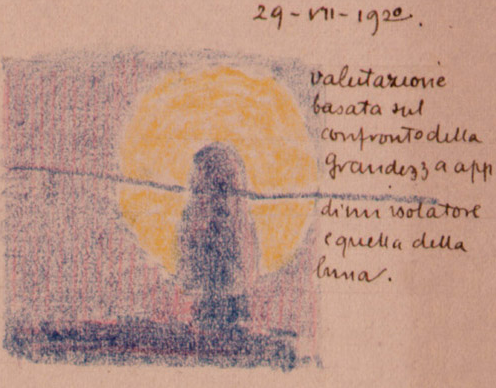 29-VII-1920.
valutazione
basata sul
confronto della
grandezza app
di un isolatore
e quella della
luna.